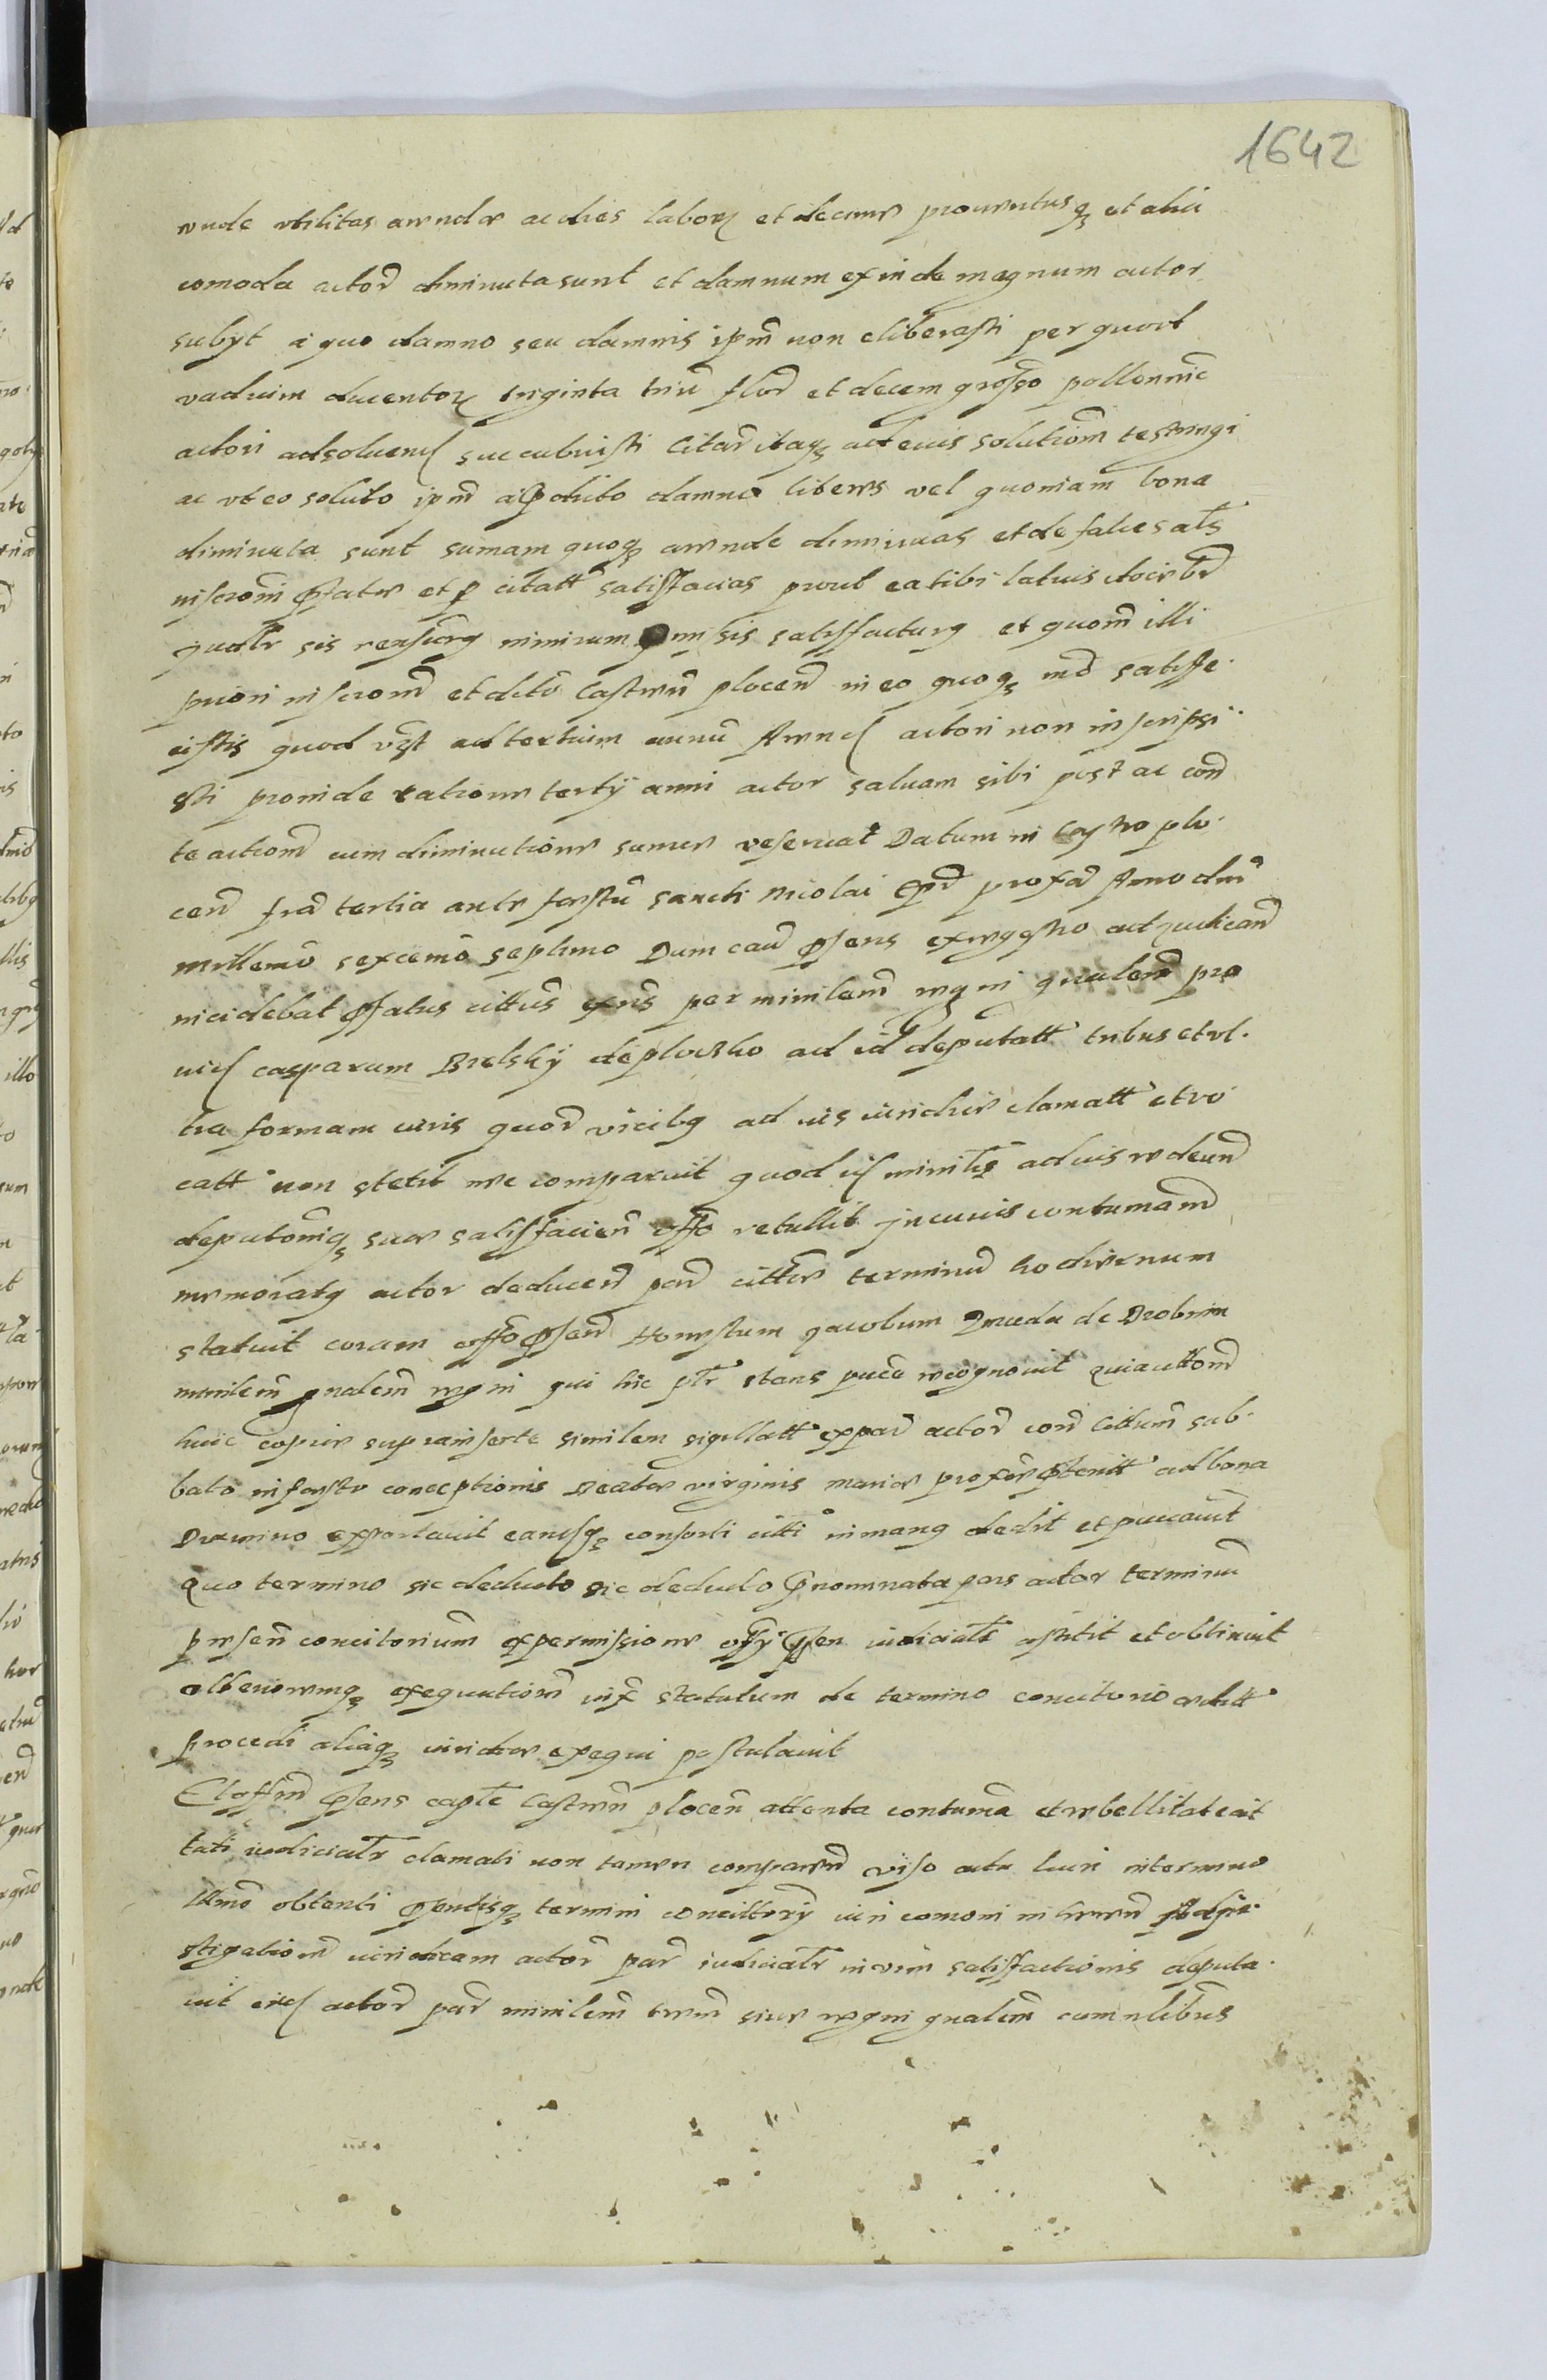 1642
unde utilitas arendae ac dies labor et decime proventusq et alia
comoda actor diminuta sunt et damnum exinde magnum actor
subyt a quo damno seu damnis ipm non eliberasti per quod
vadium ducentor triginta triu flor et decem grosso pollonnic
actori ad soluend succubuisti Citar itaq ad eius solutiom restringi
ac vt eo soluto ipm a pdicto damno liberes vel quoniam bona
diminuta sunt sumam quoq arende diminuas et defalces als
inscrom pfate et p citatt satisfacias prout ea tibi latius docebr
sis nimirum pmissis satisfacturq et quom illi
priori inscrom et dctu Castren plocen in eo quoq md satisfe
cistis quod ad tertium annu Arend actori non inscripsi
sti proinde ratione terty anni actor saluam sibi post ac con
te actiom cum diminutione sume reseruat Datum in Castro plo
cen fra tertia ante festu sancti Nicolai Epi proxa Anno dni
millemo sexcemo septimo Dum cau psens ex regestro ad judicand
incidebat pfatus cittus per minilem regni gnalem pro
uid casparum Bielskij de plocsko ad id deputatt tribus et vl
tra formam iuris quor vicibq ad ius iuridice clamatt et vo
catt non stetit nec comparuit quod id minils ad ius redeund
deputomq sue satisfacien offo retullit in cuius contumam
memoratq actor deducen par citte terminu hodiernum
statuit coram offo psen Honestum Jacobum de Drobnin
minilem gnalem regni qui hic pr stans puce recognouit quia cittom
huic copie suprainserte similem sigillatt ex par actor con Cittum sab
bato in festo conceptionis Beate virginis marie proxe pterit ad bona
exportauit eamsq consorti citti in manq dedit et puccauit
Quo termino sic deducto sic deducto pnominata pars actor terminu
presen concitorium ex permissione offy psen iudicialr astitit et obtinuit
vlterioremq exequutiom iux statutum de termino concitorio editt
procedi aliaq iuridice exequi postulauit
Et offm psens capte Castren plocen attenta contuma et rebellitate cit
tati iudicialr clamati non tamen comparen viso acta lucri in termino
obtenti psentisq termini concittory iuri comoni in
stigatiom iuridicam actor par iudicialr in vim satisfactionis deputa
uit actor par minilem terre siue regni gnalem cum nlibus